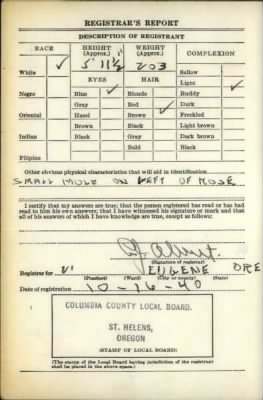 REGISTRAR'S REPORT
DESCRIPTION OF REGISTRANT
RACE HEIGHT (Approx.) WEIGHT (Approx.) COMPLEXION
5' 11½ 203
White ✓ Sallow
EYES HAIR Light ✓
Negro Blue ✓ Blonde Ruddy
Gray Red ✓ Dark
Oriental Hazel Brown Freckled
Brown Black Light brown
Indian Black Gray Dark brown
Bald Black
Filipino
Other obvious physical characteristics that will aid in identification
SMALL MOLE ON LEFT OF NOSE
I certify that my answers are true; that the person registered has read or has had
read to him his own answers; that I have witnessed his signature or mark and that
all of his answers of which I have knowledge are true, except as follows:
(Signature of registrar)
Registrar for EUGENE ORE
(Precinct) (Ward) (City or county) (State)
Date of registration 10-16-40
COLUMBIA COUNTY LOCAL BOARD.
ST. HELENS,
OREGON
(STAMP OF LOCAL BOARD)
(The stamp of the Local Board having jurisdiction of the registrant
shall be placed in the above space.)